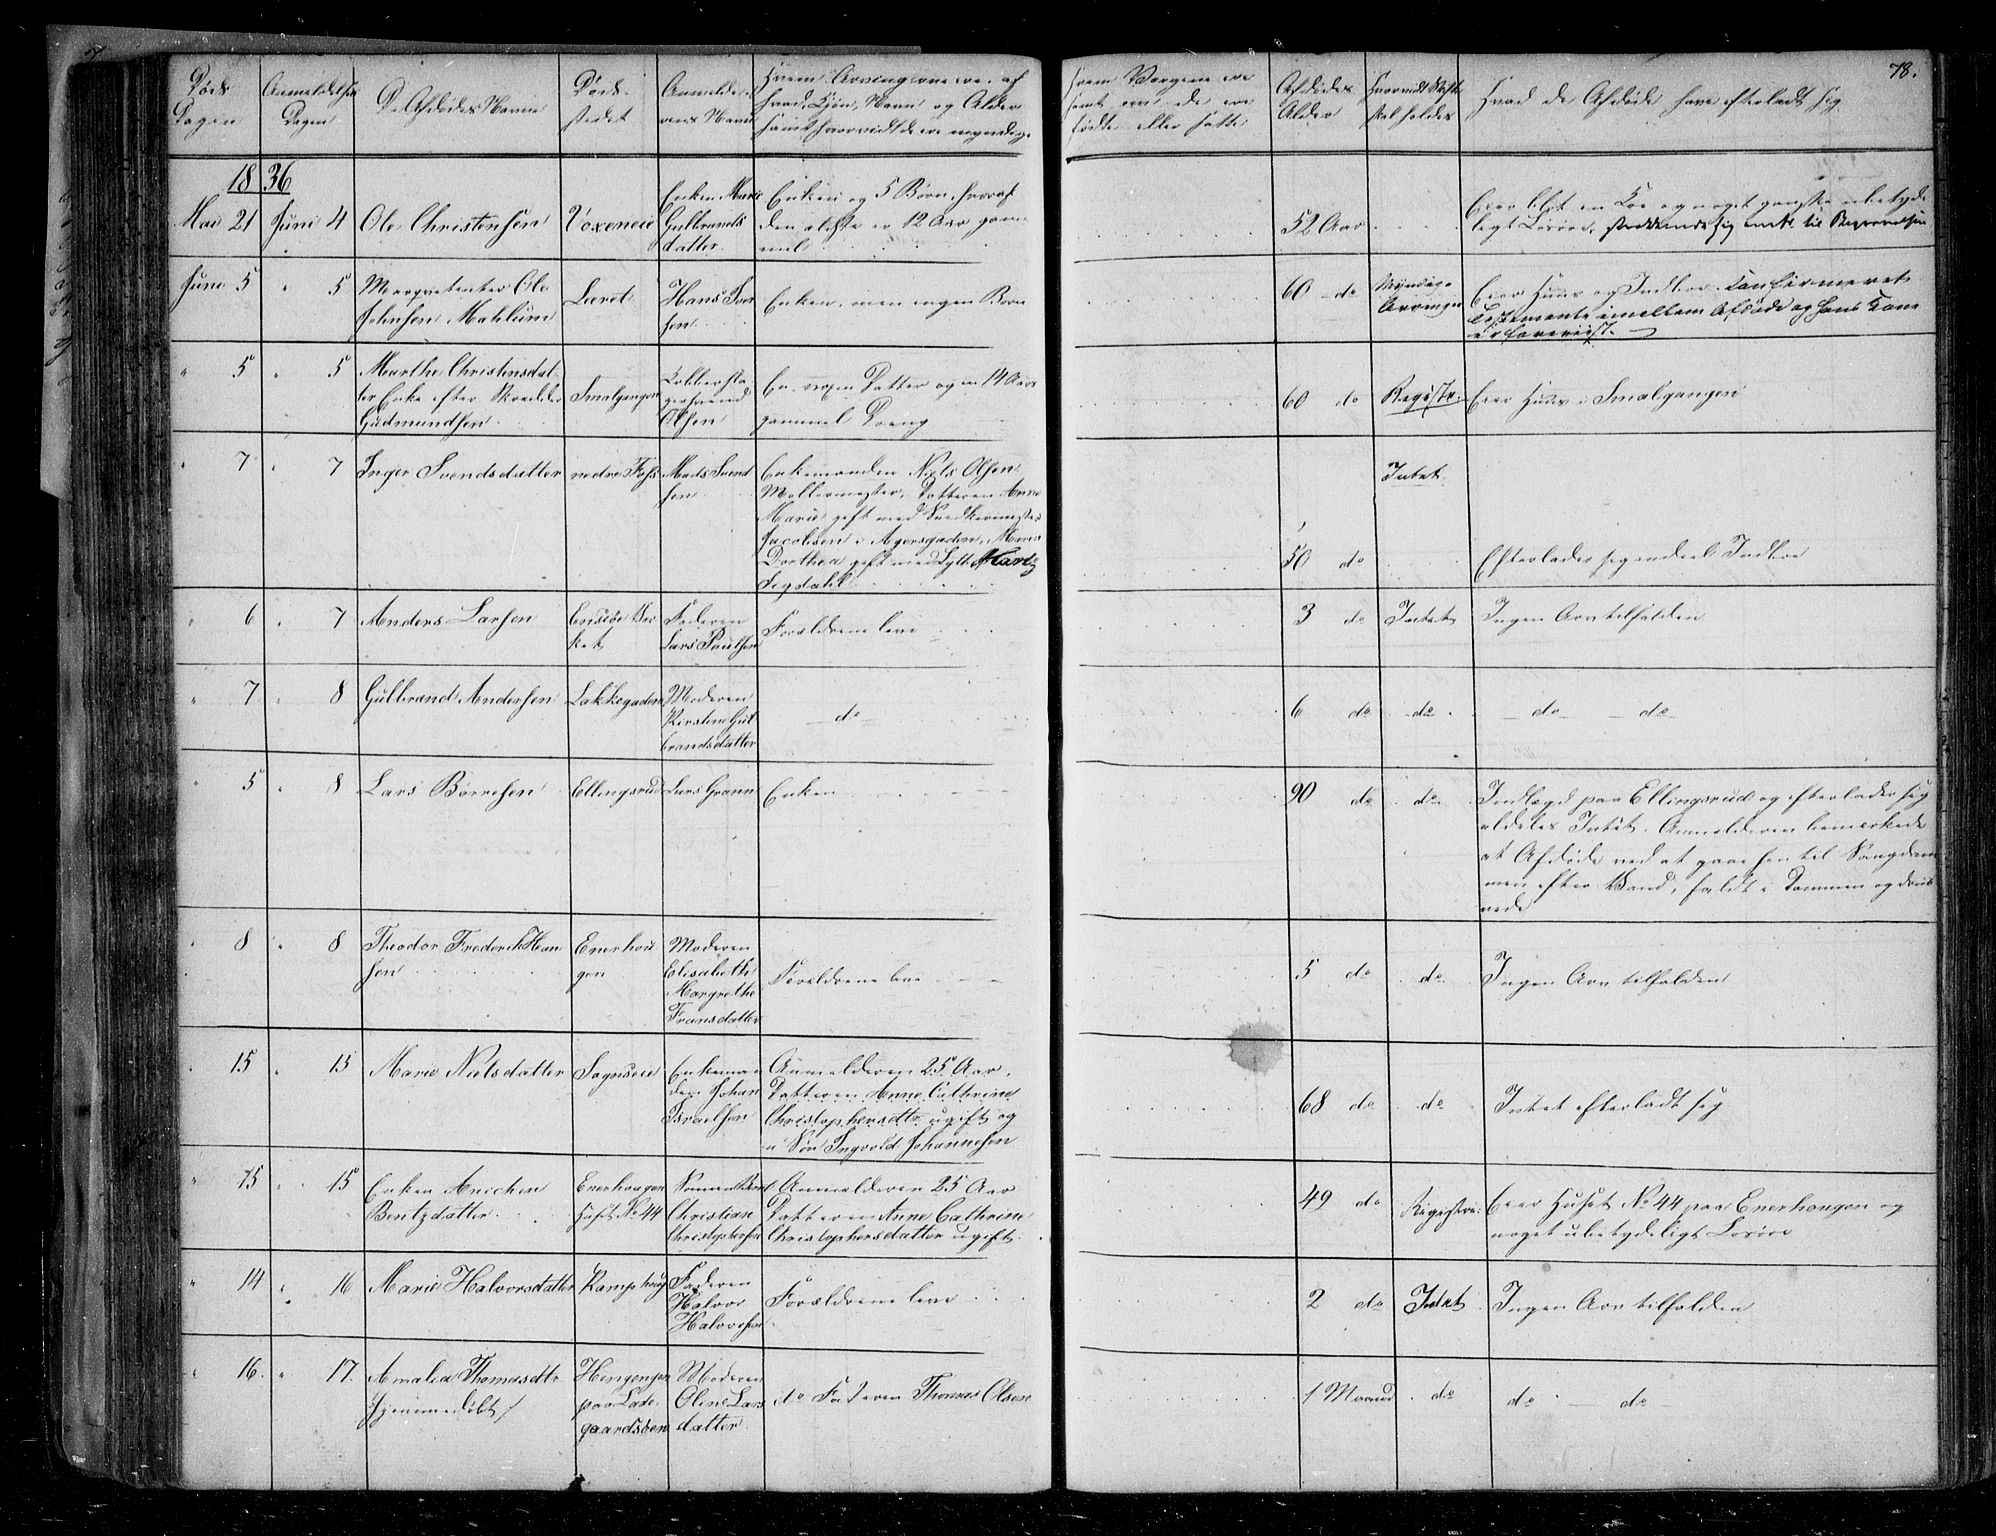 78.
Døds Dagen
Anmeldelses Dagen
De Afdødes Navne
Døds stedet
Anmelderens Navn
Hvem Arvingerne ere, af
hvad Kjøn, Navn og Alder
samt hvorvidt de ere myndige
hvem Værgerne ere
samt om de ere
fødte eller satte
Afdødes Alder
Hvorvidt Skifte skal holdes
Hvad de Afdøde have efterladt sig
1836
Mai 21 Juni 4 Ole Christensen Voxeneie
Enken Marie
Gulbrands
datter
Enken og 5 Børn, hvoraf
den ældste er 12 Aar gam
mel
52 Aar
Eier blot en Koe og noget ganske ubetyde
ligt Løsøre, strækkende sig til Begravelsen
Juni 5 " 5 Marquetenter Ole
Johnsen Mæhlum
Læret
Hans Iver
sen
Enken, men ingen Børn
60 do
Myndige
Arvinger
Eier Huus og Indboe. Confirmeret
Testamente imellem Afdøde og hans Kone
er foreviist.
" 5 " 5 Marthe Christensdat
ter Enke efter Skræder
Gudmundsen
Smalgangen
Kobberslager
Olsen
En voxen Datter og en 14 Aars
gammel Dreng
60 do Registr. Eier Huus i Smalgangen
" 7 " 7 Inger Svendsdatter nedre Foss
Mads Svend
sen
Enkemanden Niels Olsen
Møllermester, Datteren Anne
Marie gift med Snedkermester
Jacobsen i Agersgaden, Maren
Dorthea gift med
Sigdahl
Intet
50 do Efterlader sig endeel Indboe
" 6 " 7 Anders Larsen
Faderen
Lars Paulsen
Forældrene leve
3 do Intet Ingen Arv tilfalden
" 7 " 8 Gulbrand Andersen Lakkegaden
Moderen
Kirstine Gul
brandsdatter
do
6 do do do do
" 5 " 8 Lars Børresen Ellingsrud Lars Grann Enken
90 do do Indlagt paa Ellingsrud og efterlader sig
aldeles Intet. Anmelderen bemærkede
at Afdøde ved at gaae hen til Vangdam
men efter Vand, faldt i Dammen og druk
nede
" 8 " 8 Theodor Frederik Han
sen
Enerhou
gen
Moderen
Elisabeth
Margrethe
Fransdatter
Forældrene leve
5 do do Ingen Arv tilfalden
" 15 " 15 Marie Nielsdatter Sogneeie
Enkeman
den Johan
Israelsen
Anmelderen 25 Aar,
Datteren Anne Cathrine
Christophersdtr ugift og
n Søn Ingvold Johannesen
68 do do Intet efterladt sig
" 15 " 15 Enken Anichen
Bentzdatter
Enerhougen
Huset No 44
Sønnen Bernt
Christian
Christophersen
Anmelderen 25 Aar
Datteren Anne Cathrine
Christophersdatter ugift
49 do Registr. Eier Huset No 44 paa Enerhougen og
noget ubetydeligt Løsøre
" 14 " 16 Marie Halvorsdatter Kamphoug
Faderen
Halvor
Halvorsen
Forældrene leve
2 do Intet Ingen Arv tilfalden
" 16. " 17. Amalia Thomasdtr
/hjemmedøbt/
paa Lade
gaardsøen
Moderen
Oline Lars
datter
do Faderen Thomas Olsen
1 Maaned do do do